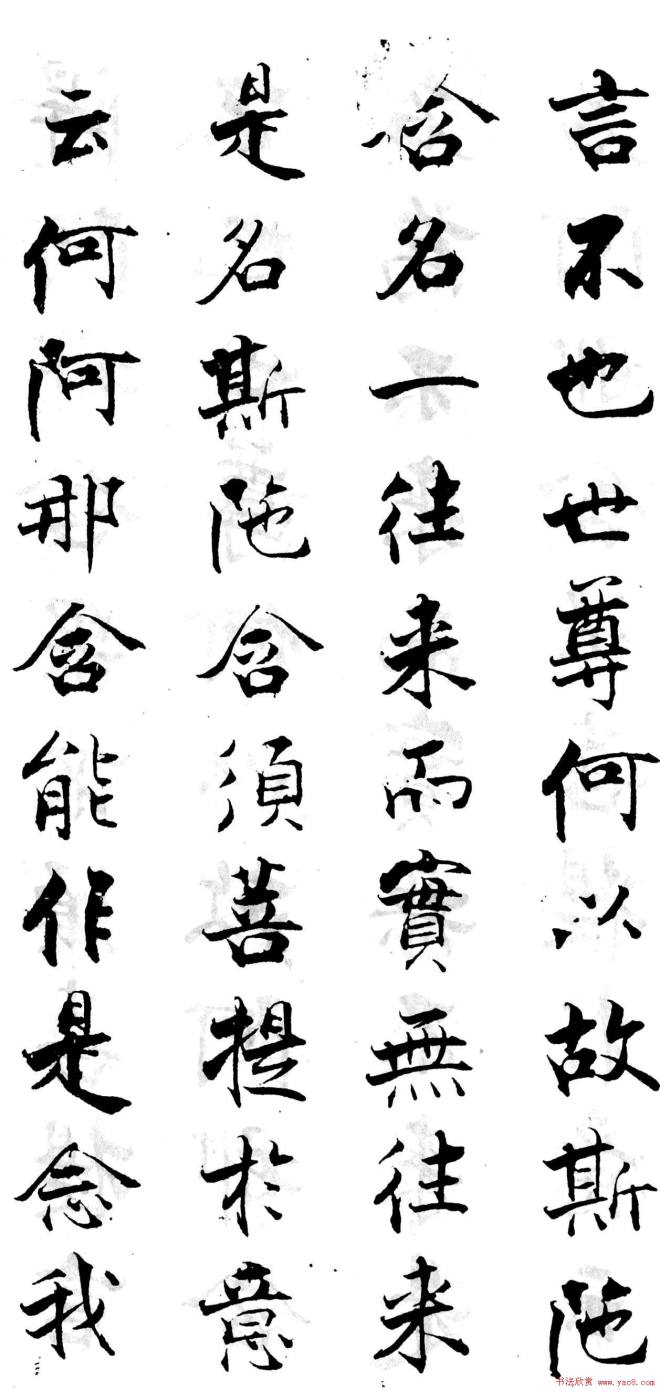 言不也世尊何以故斯陁
含名一往来而實無往来
是名斯陁含須菩提於意
云何阿那含能作是念我
书法欣赏 www.yac8.com